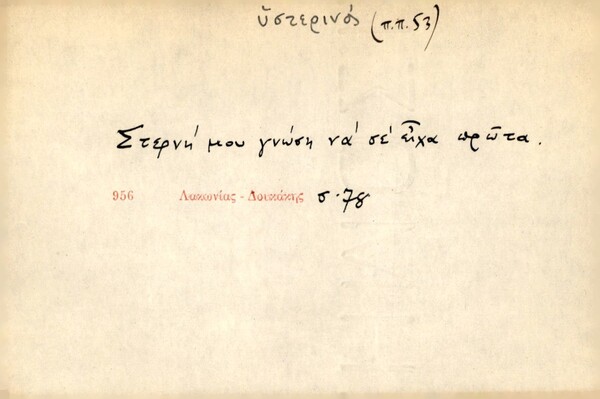 ὑστερινός (π.π. 53)
Στερνή μου γνώση νά σέ εἶχα πρῶτα.
956 Λακωνίας - Δουκάκης σ. 78